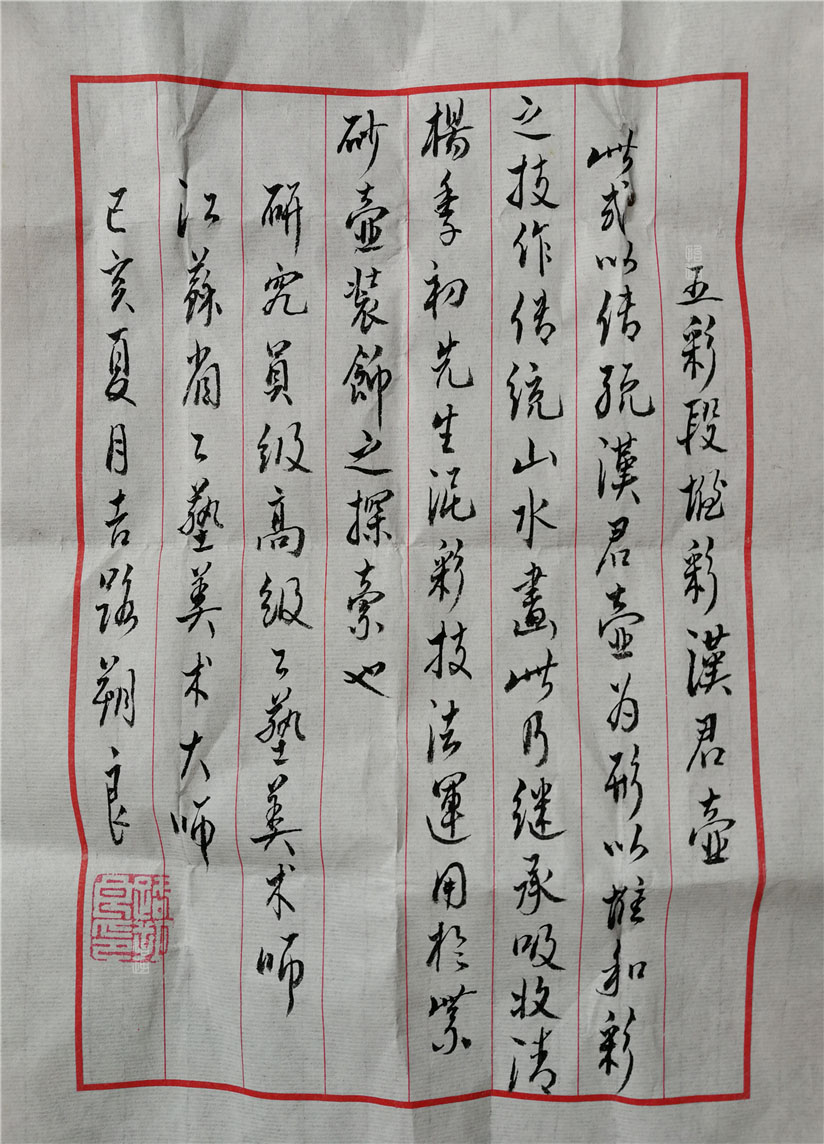 五彩段堆彩漢君壺
此式以传统漢君壺为形以堆和彩
之技作传统山水畫此乃继承吸收清
楊季初先生泥彩技法運用於紫
砂壺装飾之探索也
研究員级高级工藝美术师
江蘇省工藝美术大师
己亥夏月吉路朔良